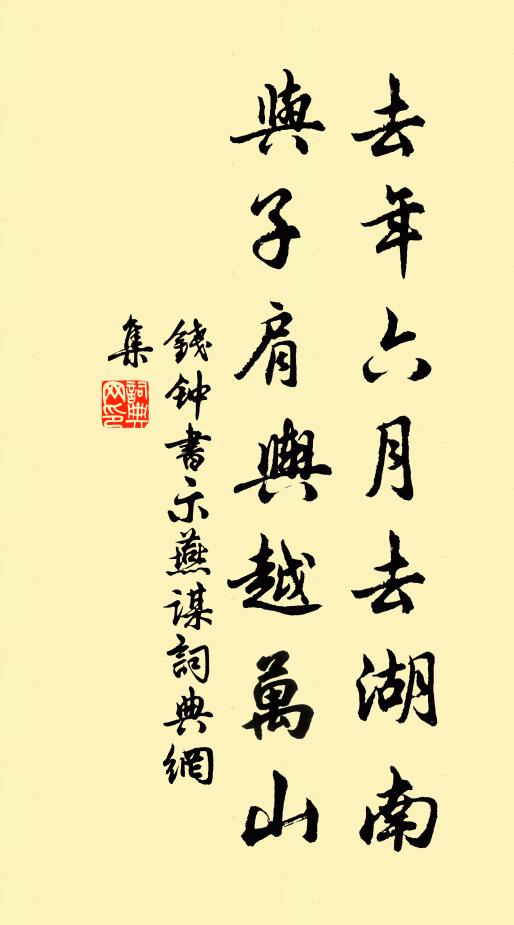 去年六月去湖南
與子肩輿越萬山
錢钟書示燕謀詞典網
集
詞典網印